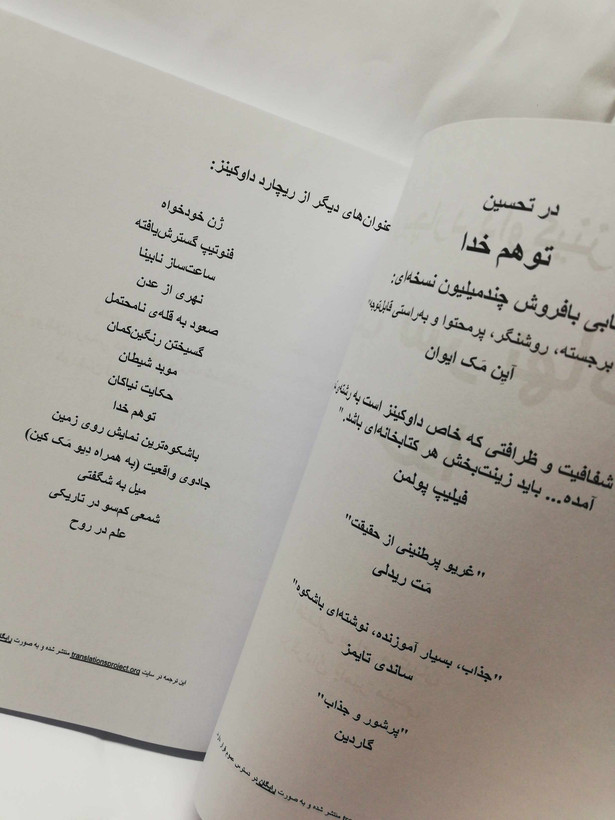 در تحسین
توهم خدا
بافروش چندمیلیون نسخه‌ای:
برجسته، روشنگر، پرمحتوا و به‌راستی
آیِن مَک ایوان
شفافیت و ظرافتی که خاص داوکینز است به
آمده... باید زینت‌بخش هر کتابخانه‌ای باشد."
فیلیپ پولمن
"غریو پرطنینی از حقیقت"
مَت ریدلی
"جذاب، بسیار آموزنده، نوشته‌ای باشکوه"
ساندی تایمز
"پرشور و جذاب"
گاردین
منتشر شده و به صورت رایگان در دسترس عموم قرار
عنوان‌های دیگر از ریچارد داوکینز:
ژن خودخواه
فنوتیپ گسترش‌یافته
ساعت‌ساز نابینا
نهری از عدن
صعود به قله‌ی نامحتمل
گسیختن رنگین‌کمان
موبد شیطان
حکایت نیاکان
توهم خدا
باشکوه‌ترین نمایش روی زمین
جادوی واقعیت (به همراه دِیو مَک کین)
میل به شگفتی
شمعی کم‌سو در تاریکی
علم در روح
این ترجمه در سایت translationsproject.org منتشر شده و به صورت